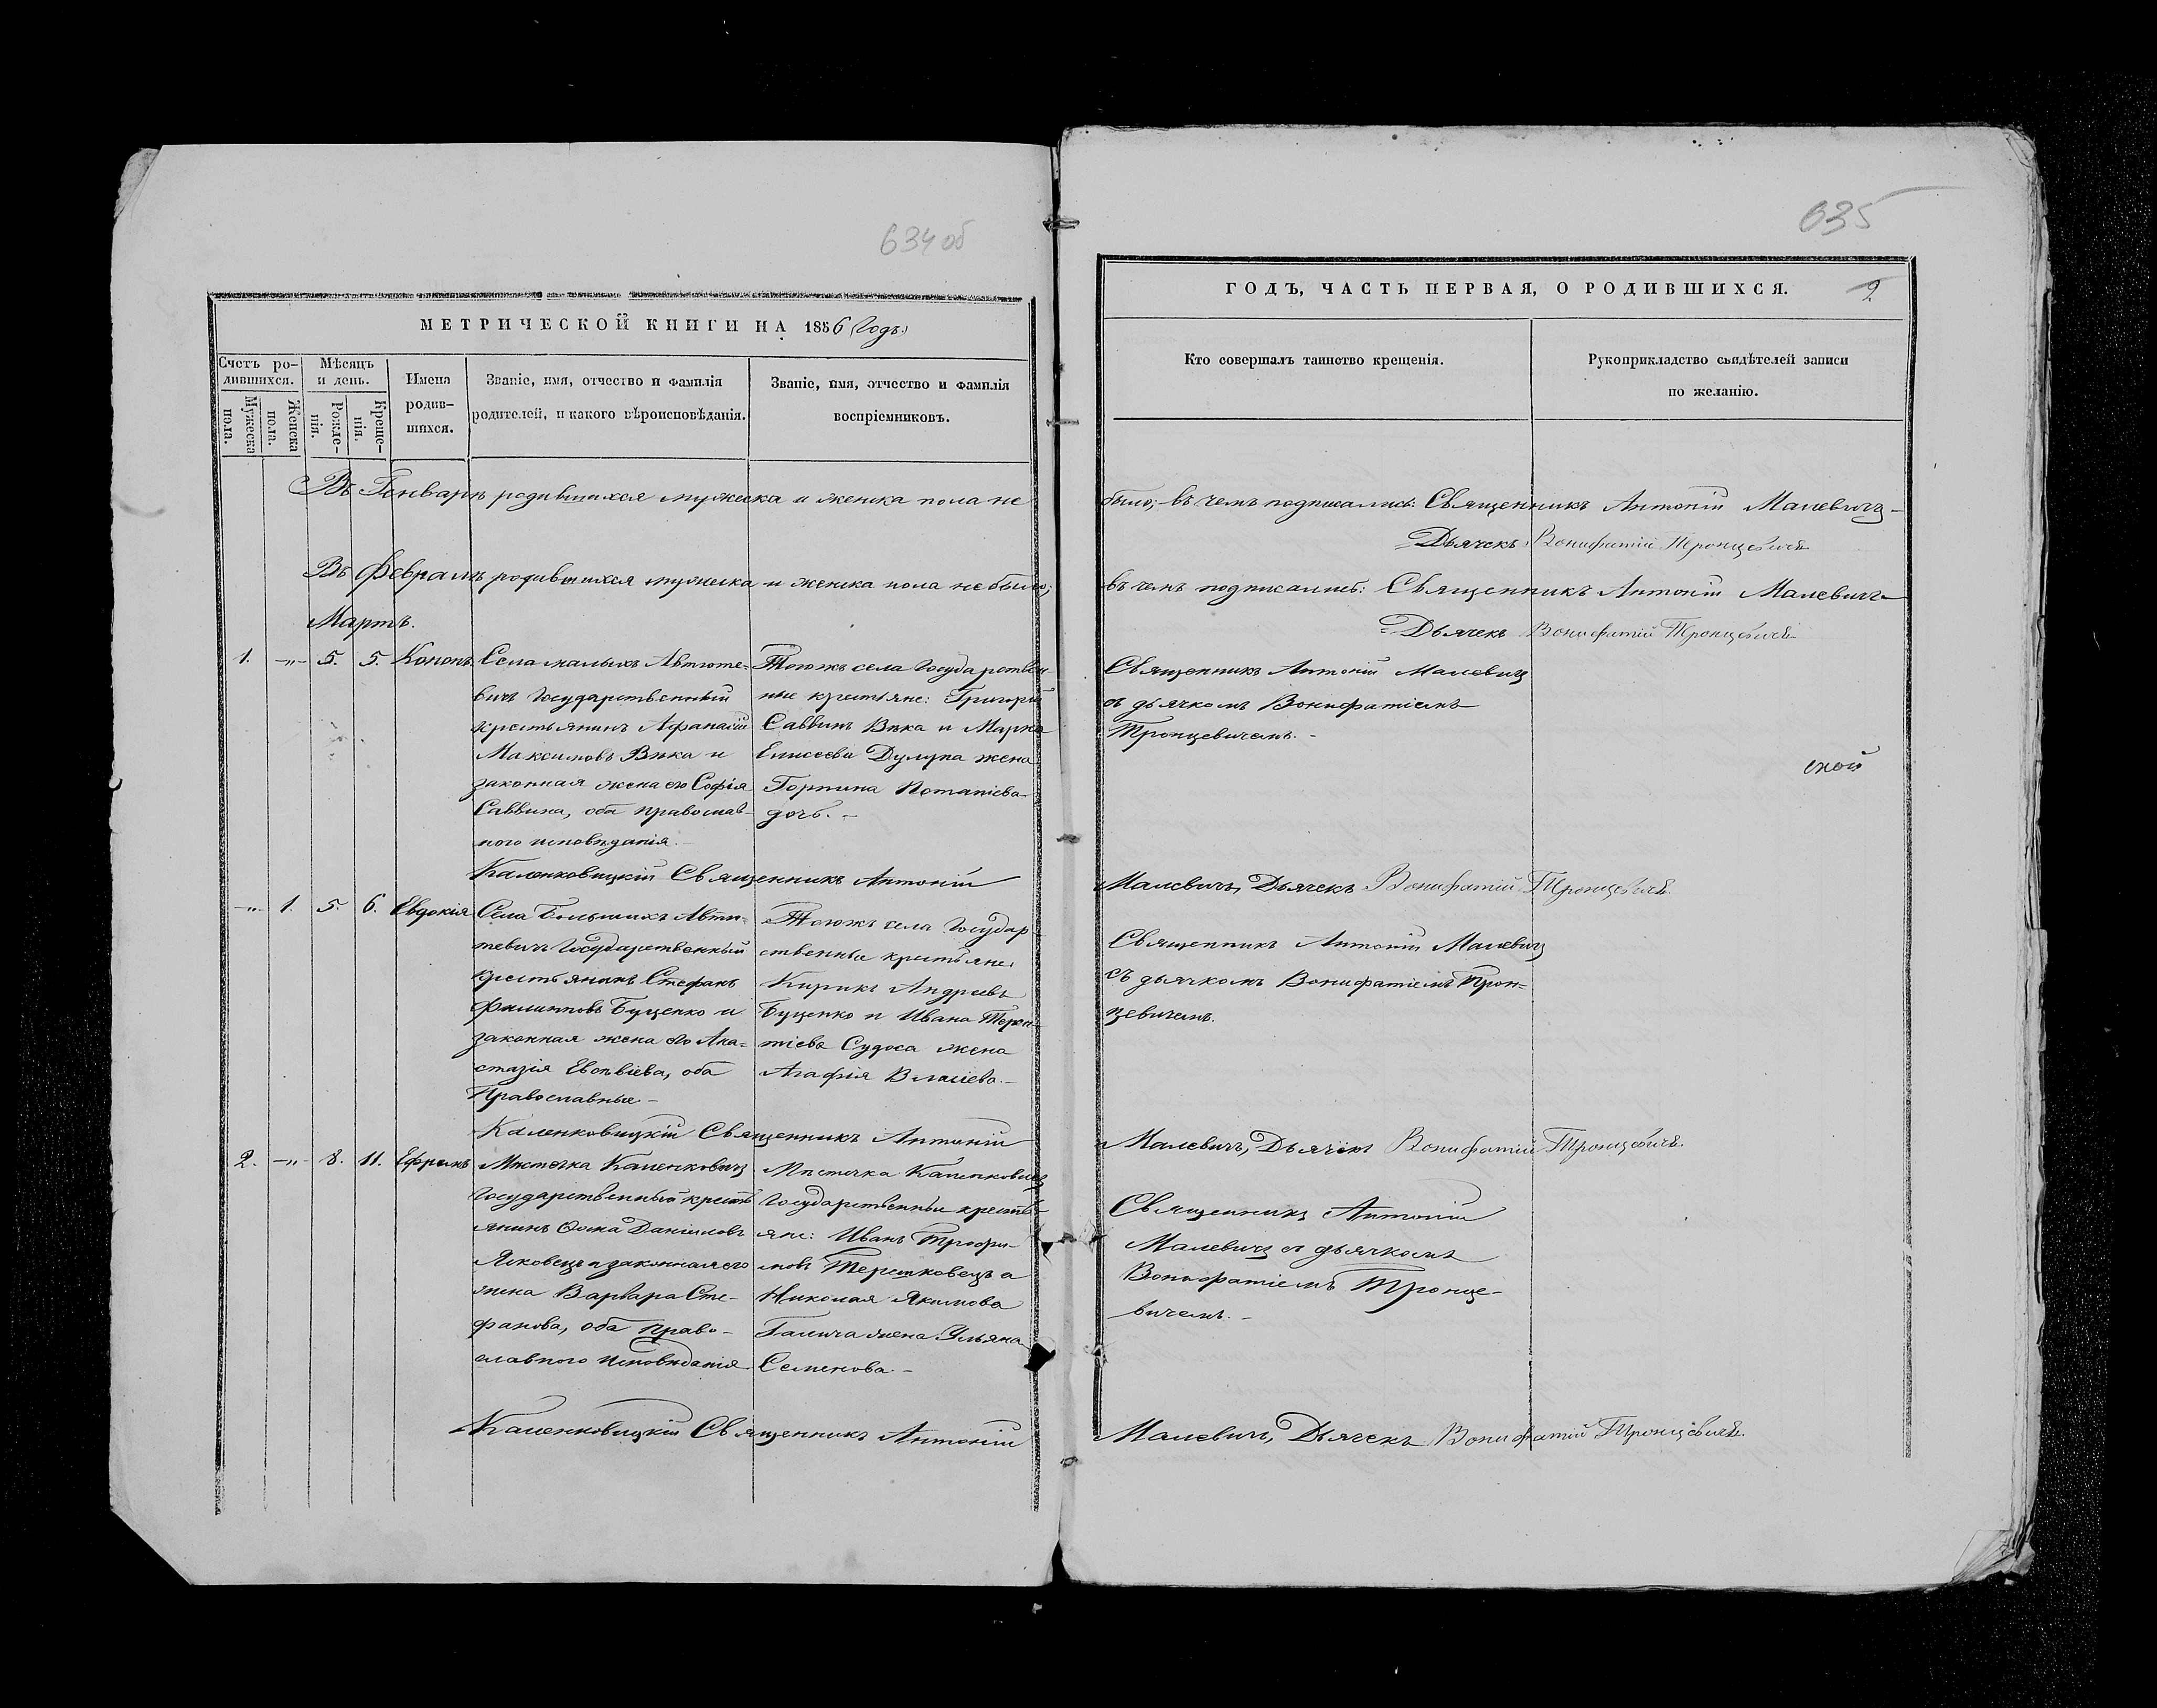 634 об
МЕТРИЧЕСКОЙ КНИГИ НА 1856 Годъ.
Счетъ ро-
дившихся.
Мужеска
пола.
Женска
пола.
Мѣсяцъ
и день.
Рожде-
нія.
Креще-
нія.
Имена
родив-
шихся.
Званіе, имя, отчество и фамилія
родителей, и какого вѣроисповѣданія.
Званіе, имя, отчество и фамилія
воспріемниковъ.
Въ Генварѣ родившихся мужеска и женска пола не
Въ Февралѣ родившихся мужеска и женска пола не было;
Мартъ.
1. -"- 5. 5. Кононъ.
Села малыхъ Автюте-
вичъ Государственный
крестьянинъ Афанасій
Максимовъ Вѣка и
законная жена его София
Саввина, оба православ-
ного исповѣданія.
Тогожъ села Государствен
ные крестьяне: Григорій
Саввинъ Вѣка и Марка
Елисеева Дулупа жена
Горпина Потапіева
дочь. -
Каленковицкій Священникъ Антоній
-"- 1. 5. 6. Евдокія
Села Большихъ Автю-
тевичъ Государственный
крестьянинъ Стефанъ
Филипповъ Буценко и
законная жена его Ана-
стазія Евсевіева, оба
Православные. -
Тогожъ села Государ
ственные крестьяне:
Кирикъ Андреевъ
Буценко и Ивана Терен-
тіева Судоса жена
Агафія Власіева. -
Каленковицкій Священникъ Антоній
2. -"- 8. 11. Ефремъ
Мѣстечка Каленковичъ
Государственный кресть
янинъ Ѳома Даниловъ
Яковецъ и законная его
жена Варвара Сте-
фанова, оба право-
славного исповѣданія.
Мѣстечка Каленковичъ
Государственные кресть-
яне: Иванъ Трофи-
мовъ Терешковецъ и
Николая Якимова
Галича жена Ульяна
Семенова. -
Каленковицкій Священникъ Антоній
635
ГОДЪ, ЧАСТЬ ПЕРВАЯ, О РОДИВШИХСЯ.
2
Кто совершалъ таинство крещенія.
Рукоприкладство свидѣтелей записи
по желанію.
было; въ чемъ подписались: Священникъ Антоній Малевичъ
Дьячекъ Вонифатій Тронцевичъ
въ чемъ подписались: Священникъ Антоній Малевичъ
Дьячекъ Вонифатій Тронцевичъ
Священникъ Антоній Малевичъ
съ дьячкомъ Вонифатіемъ
Тронцевичемъ. -
ской
Малевичъ, Дьячекъ Вонифатій Тронцевичъ.
Священникъ Антоній Малевичъ
съ дьячкомъ Вонифатіемъ Трон-
цевичемъ.
Малевичъ, Дьячекъ Вонифатій Тронцевичъ.
Священникъ Антоній
Малевичъ съ дьячкомъ
Вонифатіемъ Тронце-
вичемъ. -
Малевичъ, Дьячекъ Вонифатій Тронцевичъ.